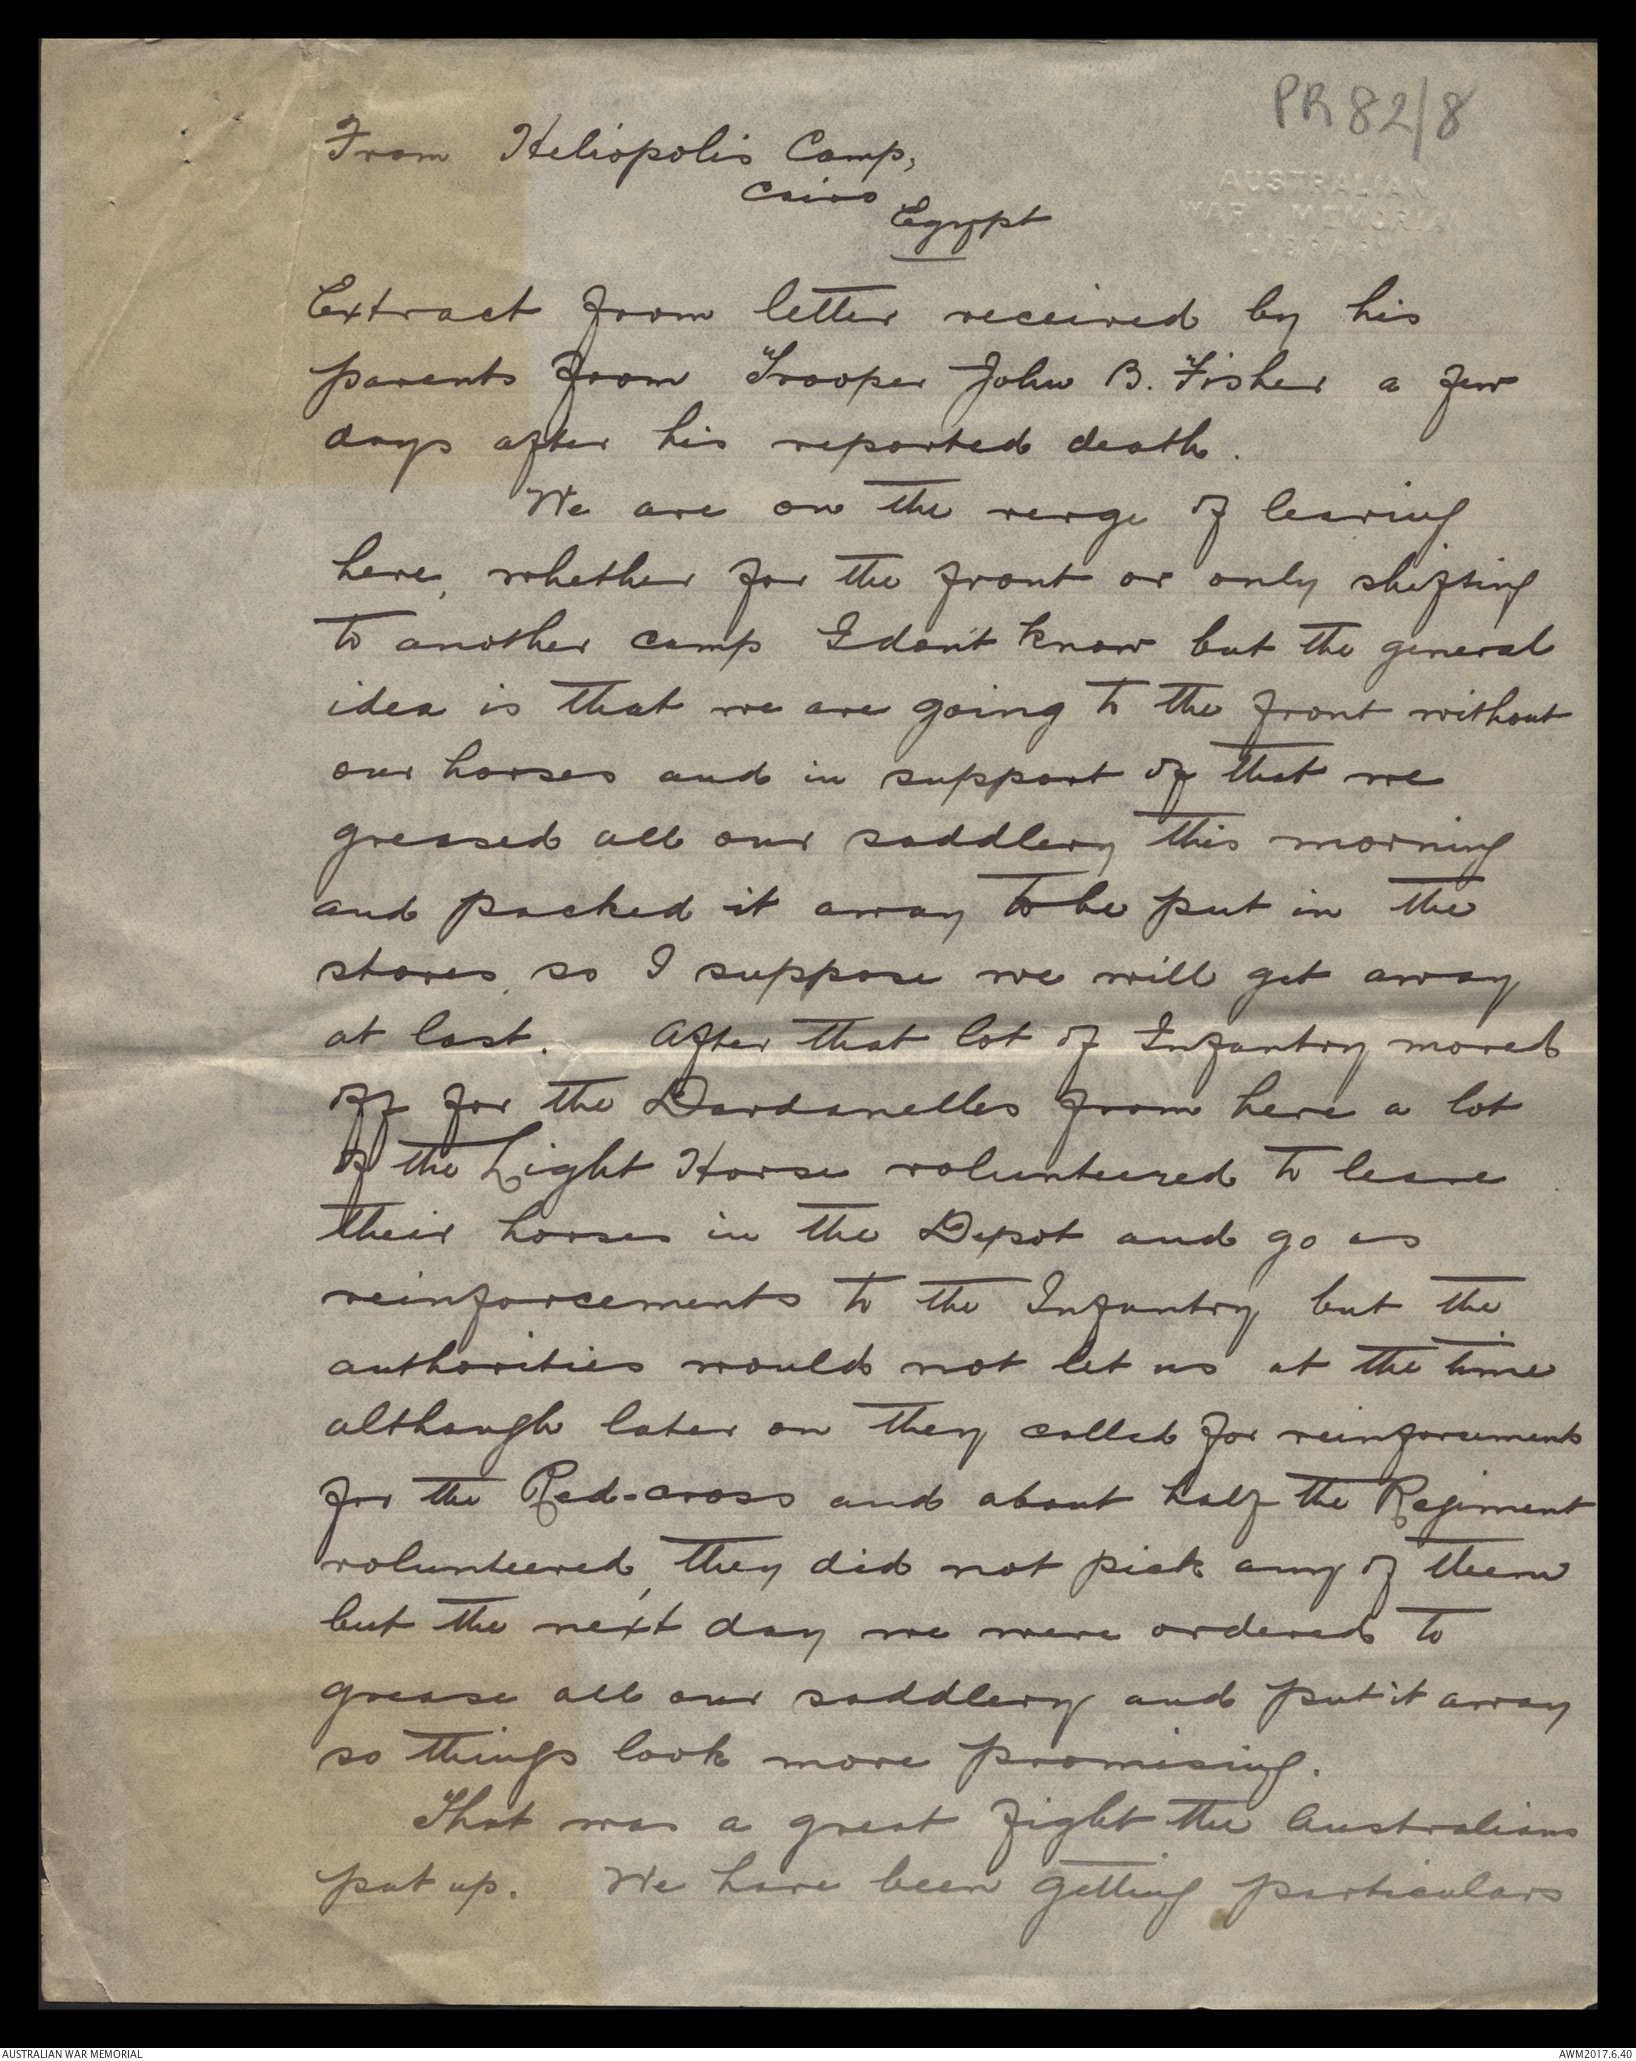 PR 82/8
AUSTRALIAN
WAR MEMORIAL
LIBRARY
From Heliopolis Camp,
Cairo
Egypt
Extract from letter received by his
parents from Trooper John B. Fisher a few
days after his reported death.
We are on the verge of leaving
here, whether for the front or only shifting
to another camp I don't know but the general
idea is that we are going to the front without
our horses and in support of that we
greased all our saddlery this morning
and packed it away to be put in the
stores, so I suppose we will get away
at last. After that lot of Infantry moved
off for the Dardanelles from here a lot
of the Light Horse volunteered to leave
their horses in the Depot and go as
reinforcements to the Infantry but the
authorities would not let us at the time
although later on they called for reinforcements
for the Red-cross and about half the Regiment
volunteered, they did not pick any of them
but the next day we were ordered to
grease all our saddlery and put it away
so things look more promising.
That was a great fight the Australians
put up. We have been getting particulars
AUSTRALIAN WAR MEMORIAL
AWM2017.6.40